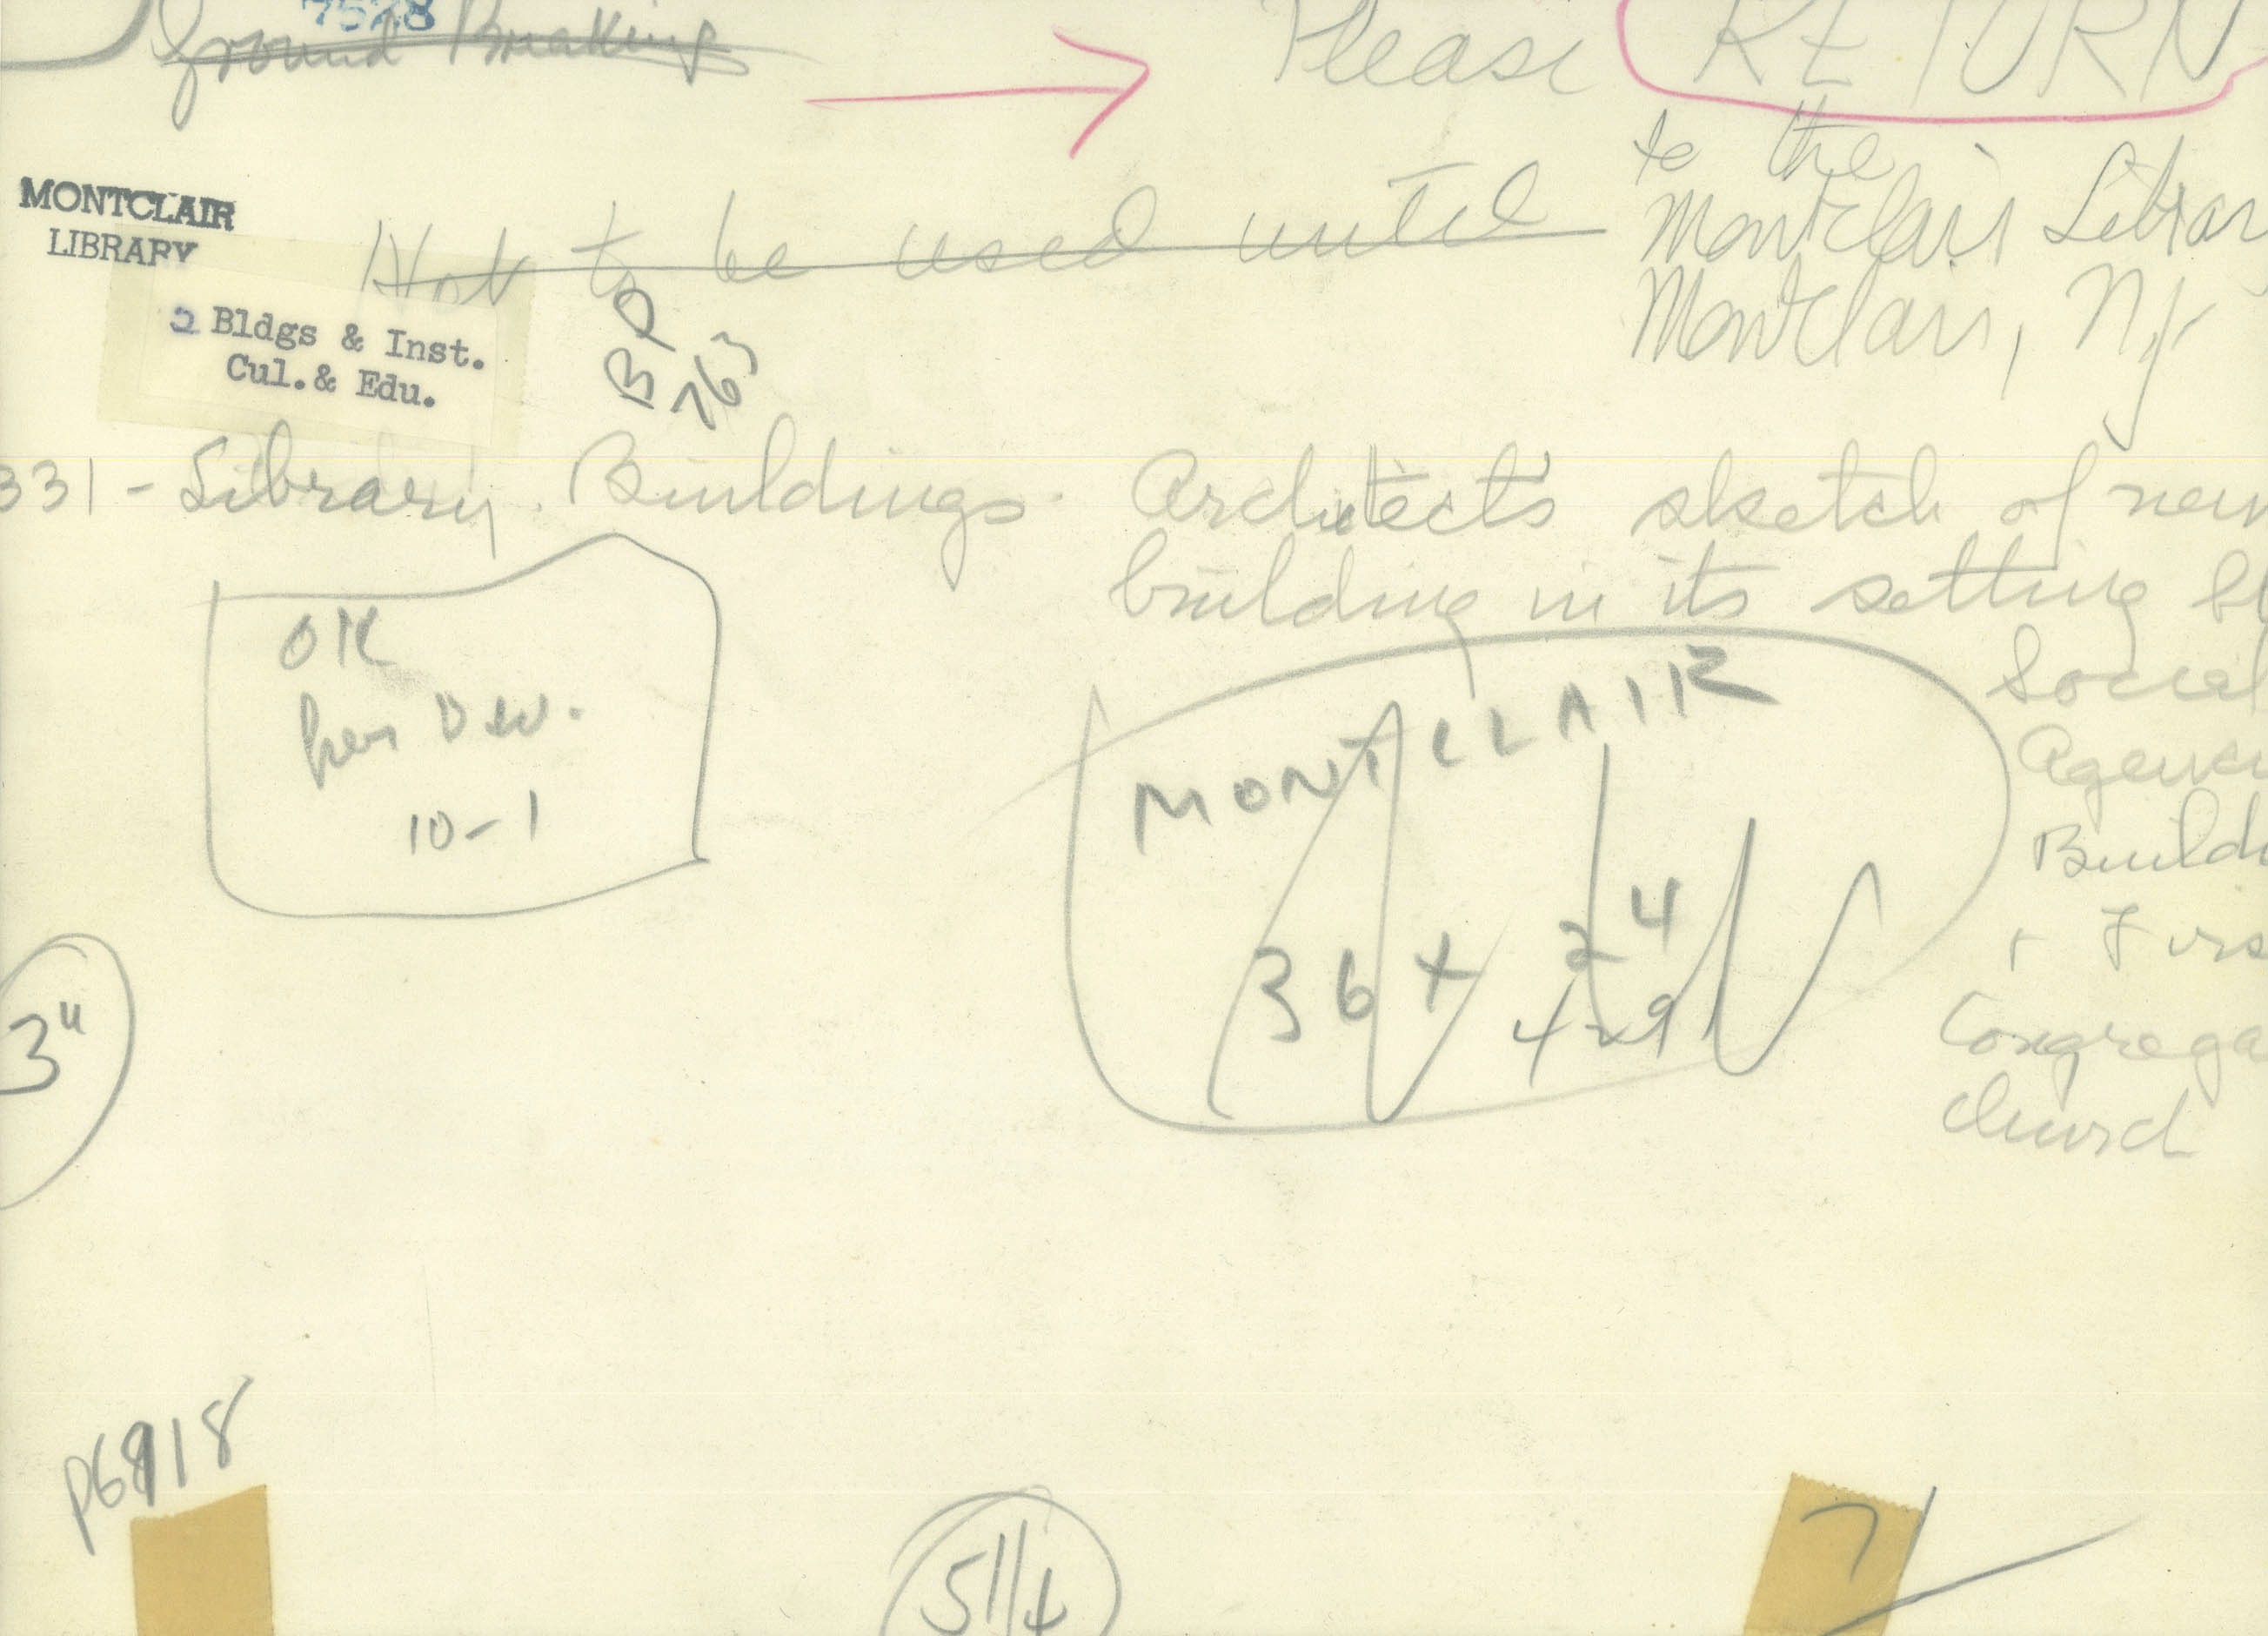 7528
Ground Breaking
Please RETURN
to the
Montclair Library
Montclair, N.J.
MONTCLAIR
LIBRARY
Not to be used until
Bldgs & Inst.
Cul.& Edu.
BP
763
331 - Library Buildings. Architect's sketch of new
building in its setting
Social
Agenci
Build
+ Firs
Congrega
Church
OK
per Dew.
10-1
MONTCLAIR
36 x 24
429
3"
p6918
51/4